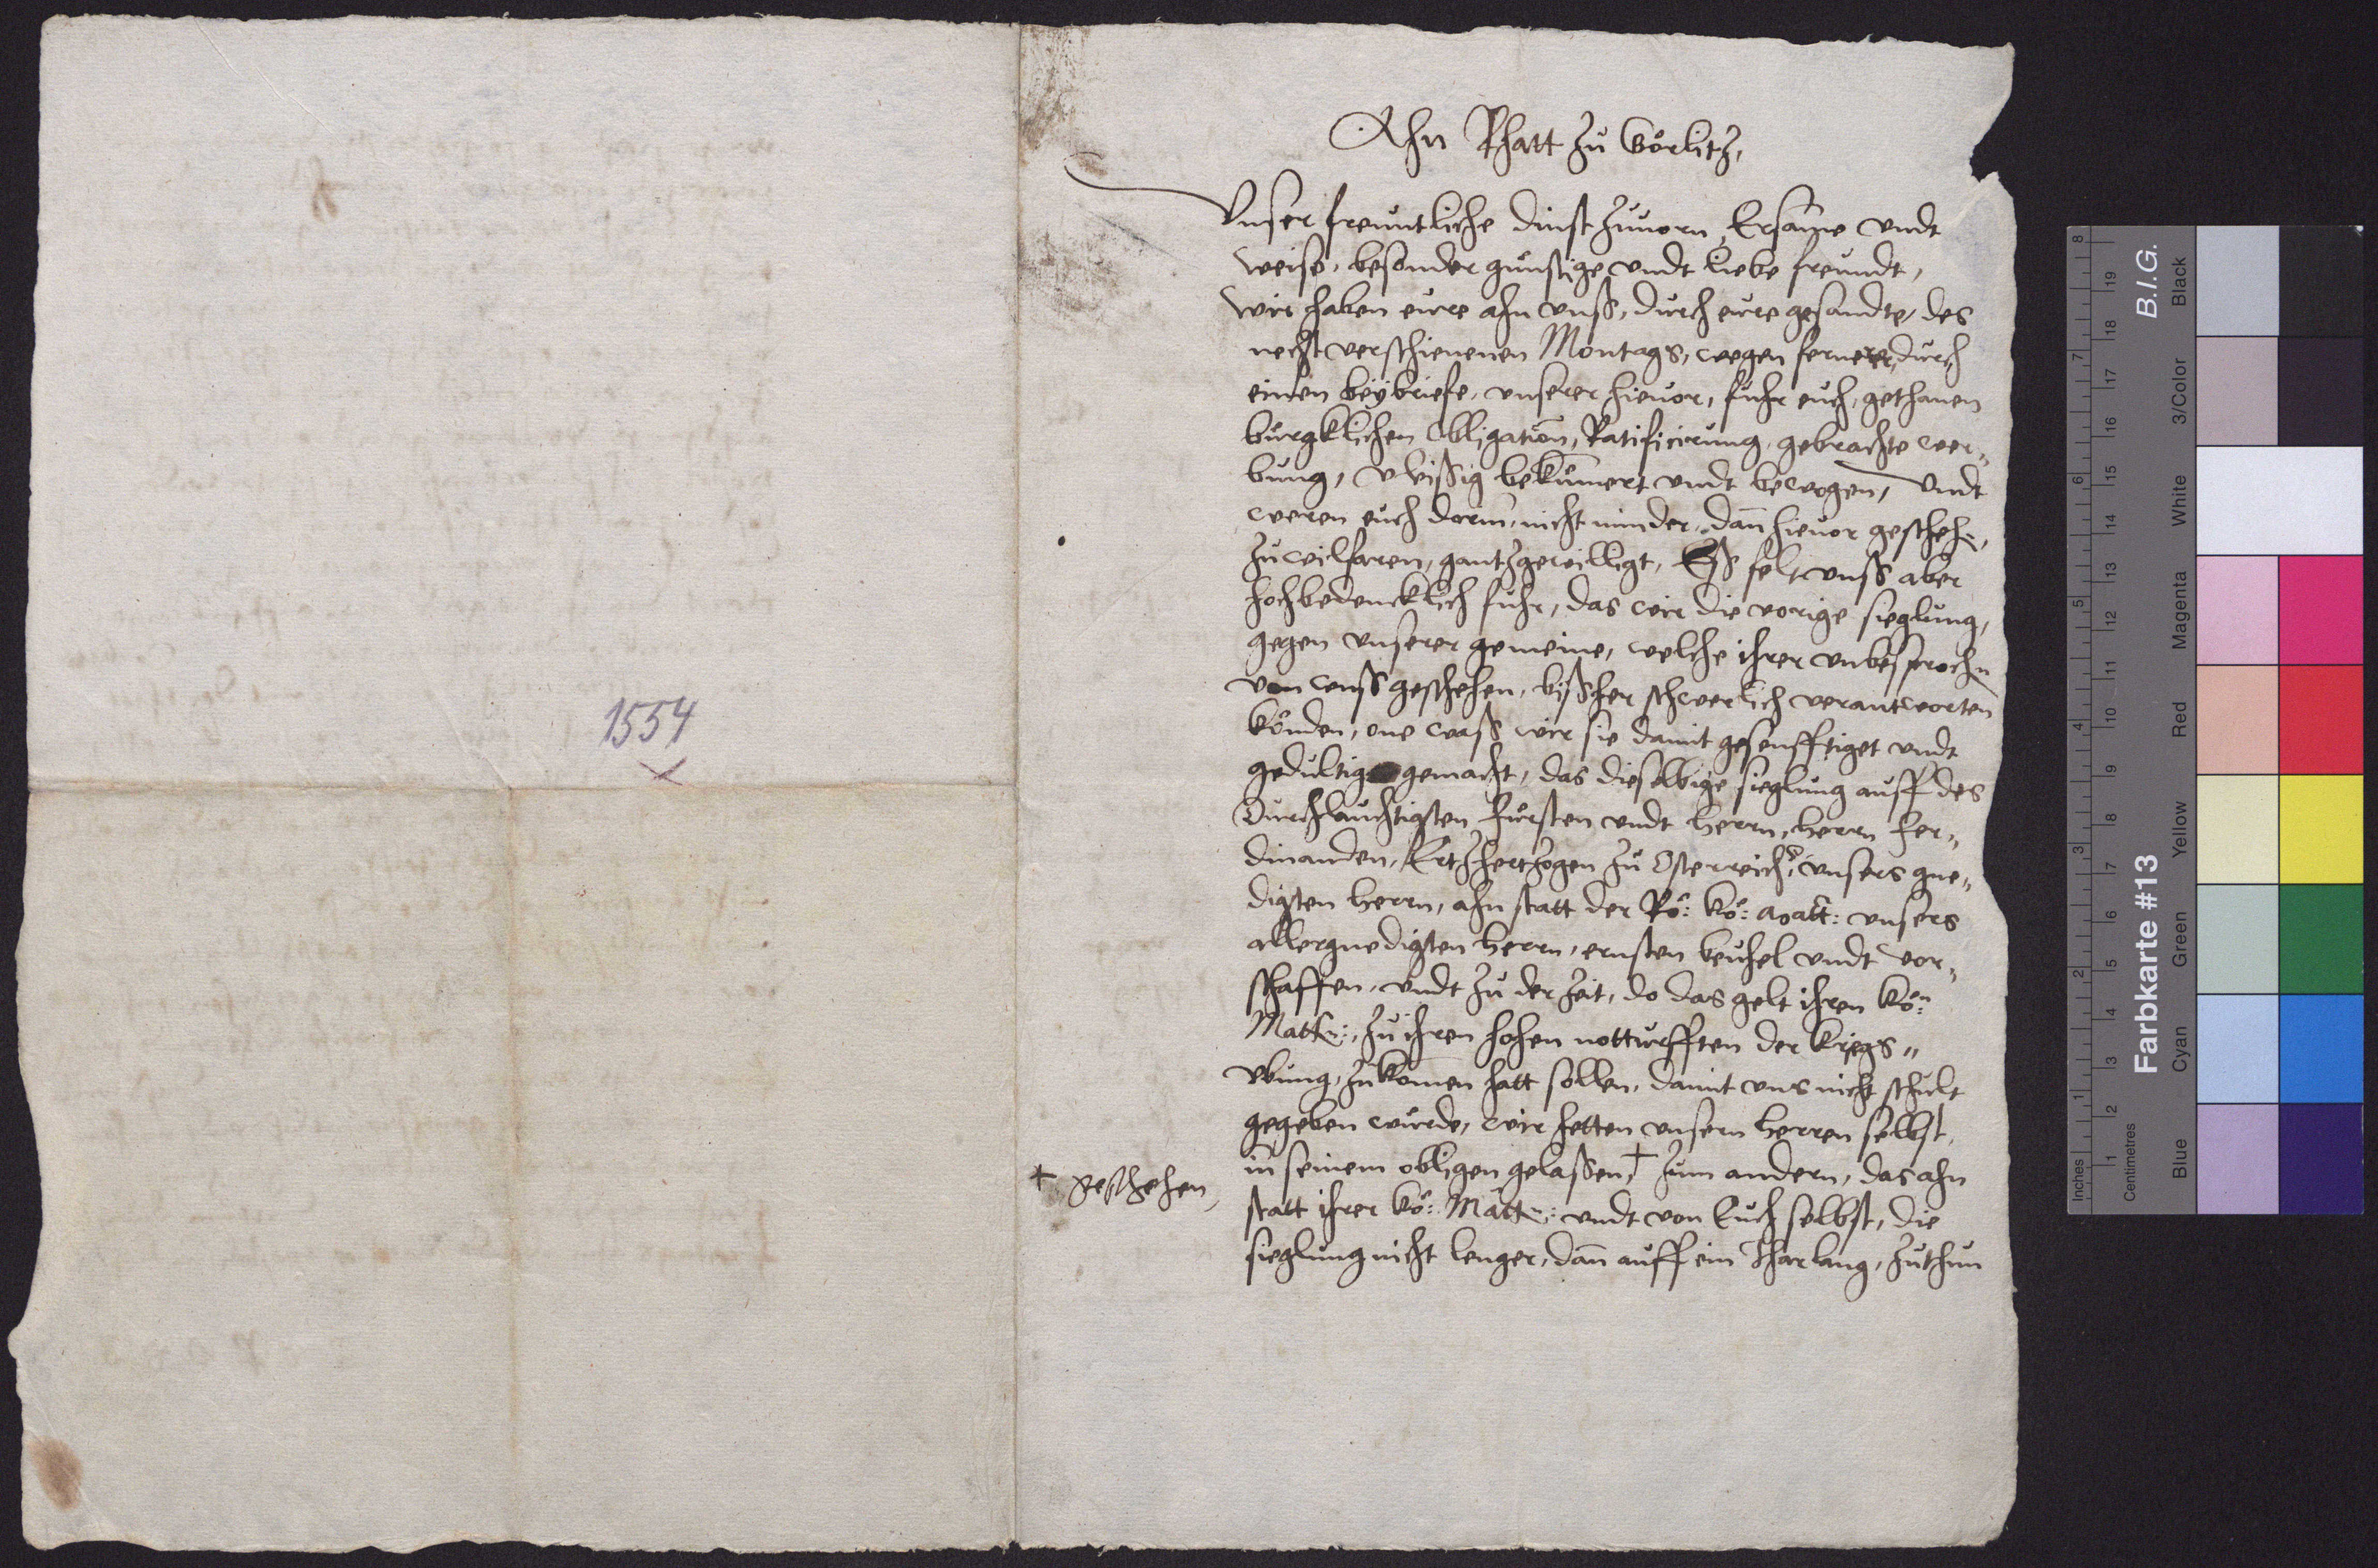 1554
Ahn Rhatt zu Görlitz,
Vnser freuntliche dinst zuuorn, Ersame vndt
weise, besonder günstige vndt liebe freundt,
wir haben eure ahn vnß, durch eure gesandte, des
nechst verschienenen Montags, wegen fernerer, durch
einen beybriefe, vnserer hieuor, fuhr euch, gethanen
burgklichen Obligation, Ratificirung, gebrachte wer„
bung, vleißig bekümert vndt bewogen, Vndt
weren euch dorin, nicht minder, dan hieuor geschehn,
zu wilfaren, gantz gewilligt, Eß felt vnß aber
hochbedencklich fuhr, das wir die vorige sieglung,
gegen vnserer gemeine, welche ihrer vnbesprochn
von vnß geschehen, bißher schwerlich verantworten
können, one waß wir sie damit gesenfftiget vndt
gedultig gemacht, das dieselbige sieglung auff des
Durchlauchtigsten Fürsten vndt herrn, herrn Fer„
dinanden, Ertzhertzogen zu Osterreich, vnsers gne„
digsten herrn, ahn statt der Rö: Kö: Matt: vnsers
allergnedigsten herrn, ernsten beuhel vndt vor„
schaffen, vndt zu der Zeit, do das gelt ihren Kön:
Mattn:, zu ihren hohen notturfften der Kriegs„
vbung, zukomen hatt sollen, damit vns nicht schult
gegeben würde, wir hetten vnsern herren selbst,
in seinem obligen gelaßen, † zum andern, das ahn
† geschehen,
statt ihrer Kö: Mattn: vndt von Euch selbst, die
sieglung nicht lenger, dan auff ein Jhar lang, zuthun
Inches
Centimetres
Farbkarte #13
B.I.G.
Blue
Cyan
Green
Yellow
Red
Magenta
White
3/Color
Black